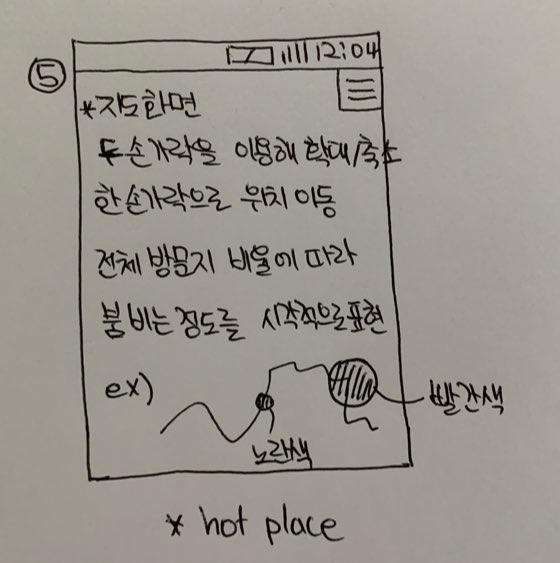 ⑤
12:04
*지도화면
두 손가락을 이용해 확대/축소
한 손가락으로 위치 이동
전체 방문지 비율에 따라
붐비는 정도를 시각적으로 표현
ex)
빨간색
노란색
* hot place